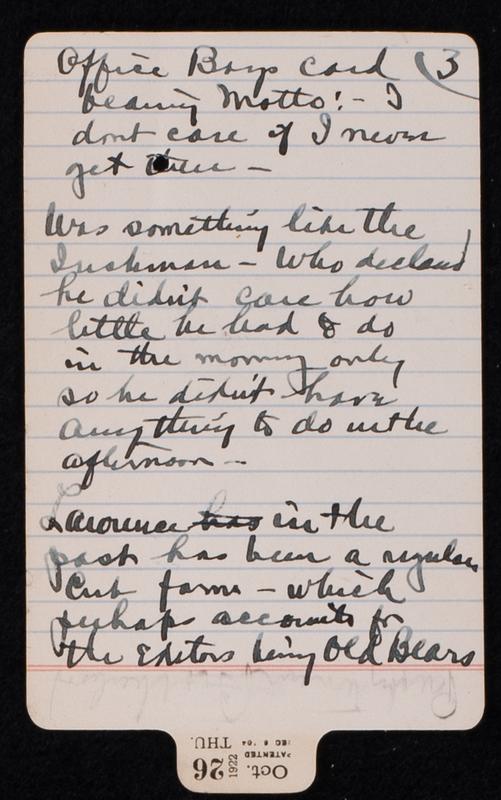 Office Boys card (3
bearing Motto:- I
dont care if I never
get there -
Was something like the
Irishman - Who declared
he didn't care how
little he had to do
in the morning only
so he didn't have
anything to do in the
afternoon -
Larouce has in the
past has been a regular
Cub farm - which
perhaps accounts for
the Editors being Old Bears
Oct.
26
1922
THU.
PATENTED
DEC 6 '04